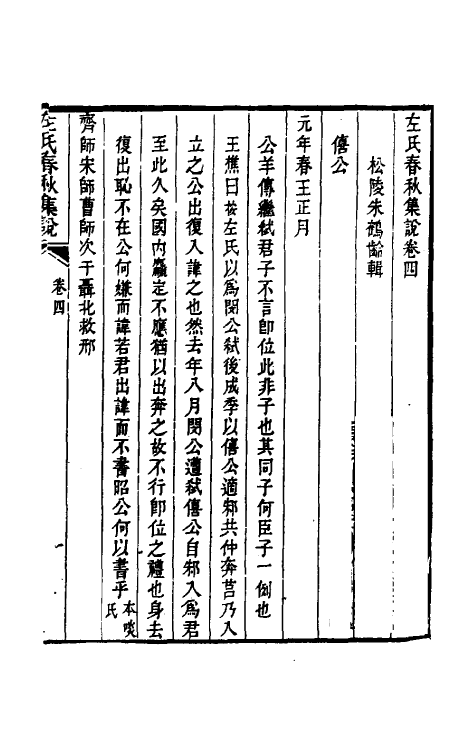 左氏春秋集說卷四
松陵朱鶴齡輯
僖公
元年春王正月
公羊傳繼弒君子不言卽位此非子也其同子何臣子一例也
王樵曰按左氏以爲閔公弒後成季以僖公適邾共仲奔莒乃入
立之公出復入諱之也然去年八月閔公遭弒僖公自邾入爲君
至此久矣國內纂定不應猶以出奔之故不行卽位之禮也身去
復出恥不在公何嫌而諱若君出諱而不書昭公何以書乎本啖氏
齊師宋師曹師次于聶北救邢
左氏春秋集說
卷四
一